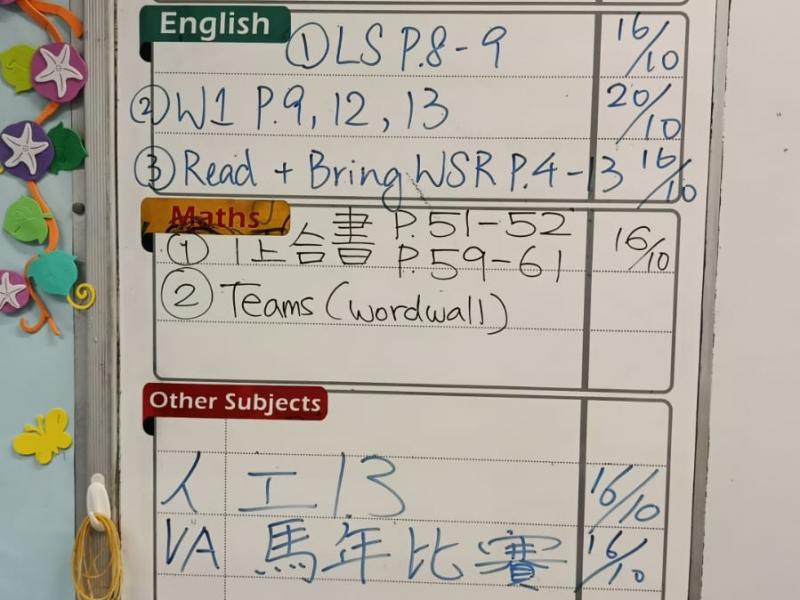 English
① LS P.8-9 16/10
② W1 P.9, 12, 13 20/10
③ Read + Bring WSR P.4-13 16/10
Maths
P.51-52
① 作合書 P.59-61 16/10
② Teams (wordwall)
Other Subjects
人 工13 16/10
VA 馬年比賽 16/10